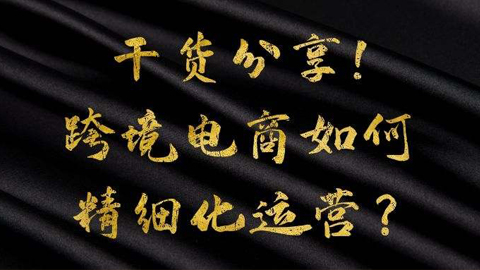 干货分享！
跨境电商如何
精细化运营？